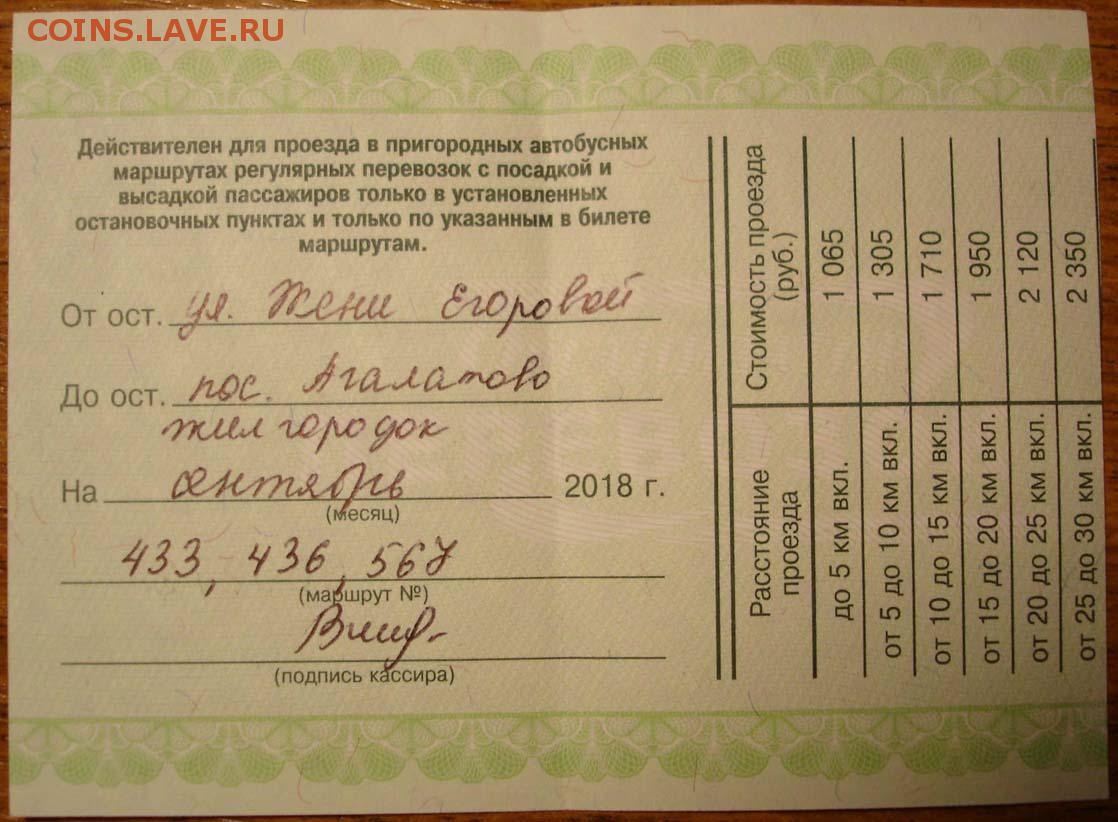 COINS.LAVE.RU
Действителен для проезда в пригородных автобусных
маршрутах регулярных перевозок с посадкой и
высадкой пассажиров только в установленных
остановочных пунктах и только по указанным в билете
маршрутам.
От ост. ул. Жени Егоровой
До ост. пос. Агалатово
жилгородок
На сентябрь 2018 г.
(месяц)
433, 436, 567
(маршрут №)
(подпись кассира)
Расстояние проезда Стоимость проезда (руб.)
до 5 км вкл. 1 065
от 5 до 10 км вкл. 1 305
от 10 до 15 км вкл. 1 710
от 15 до 20 км вкл. 1 950
от 20 до 25 км вкл. 2 120
от 25 до 30 км вкл. 2 350